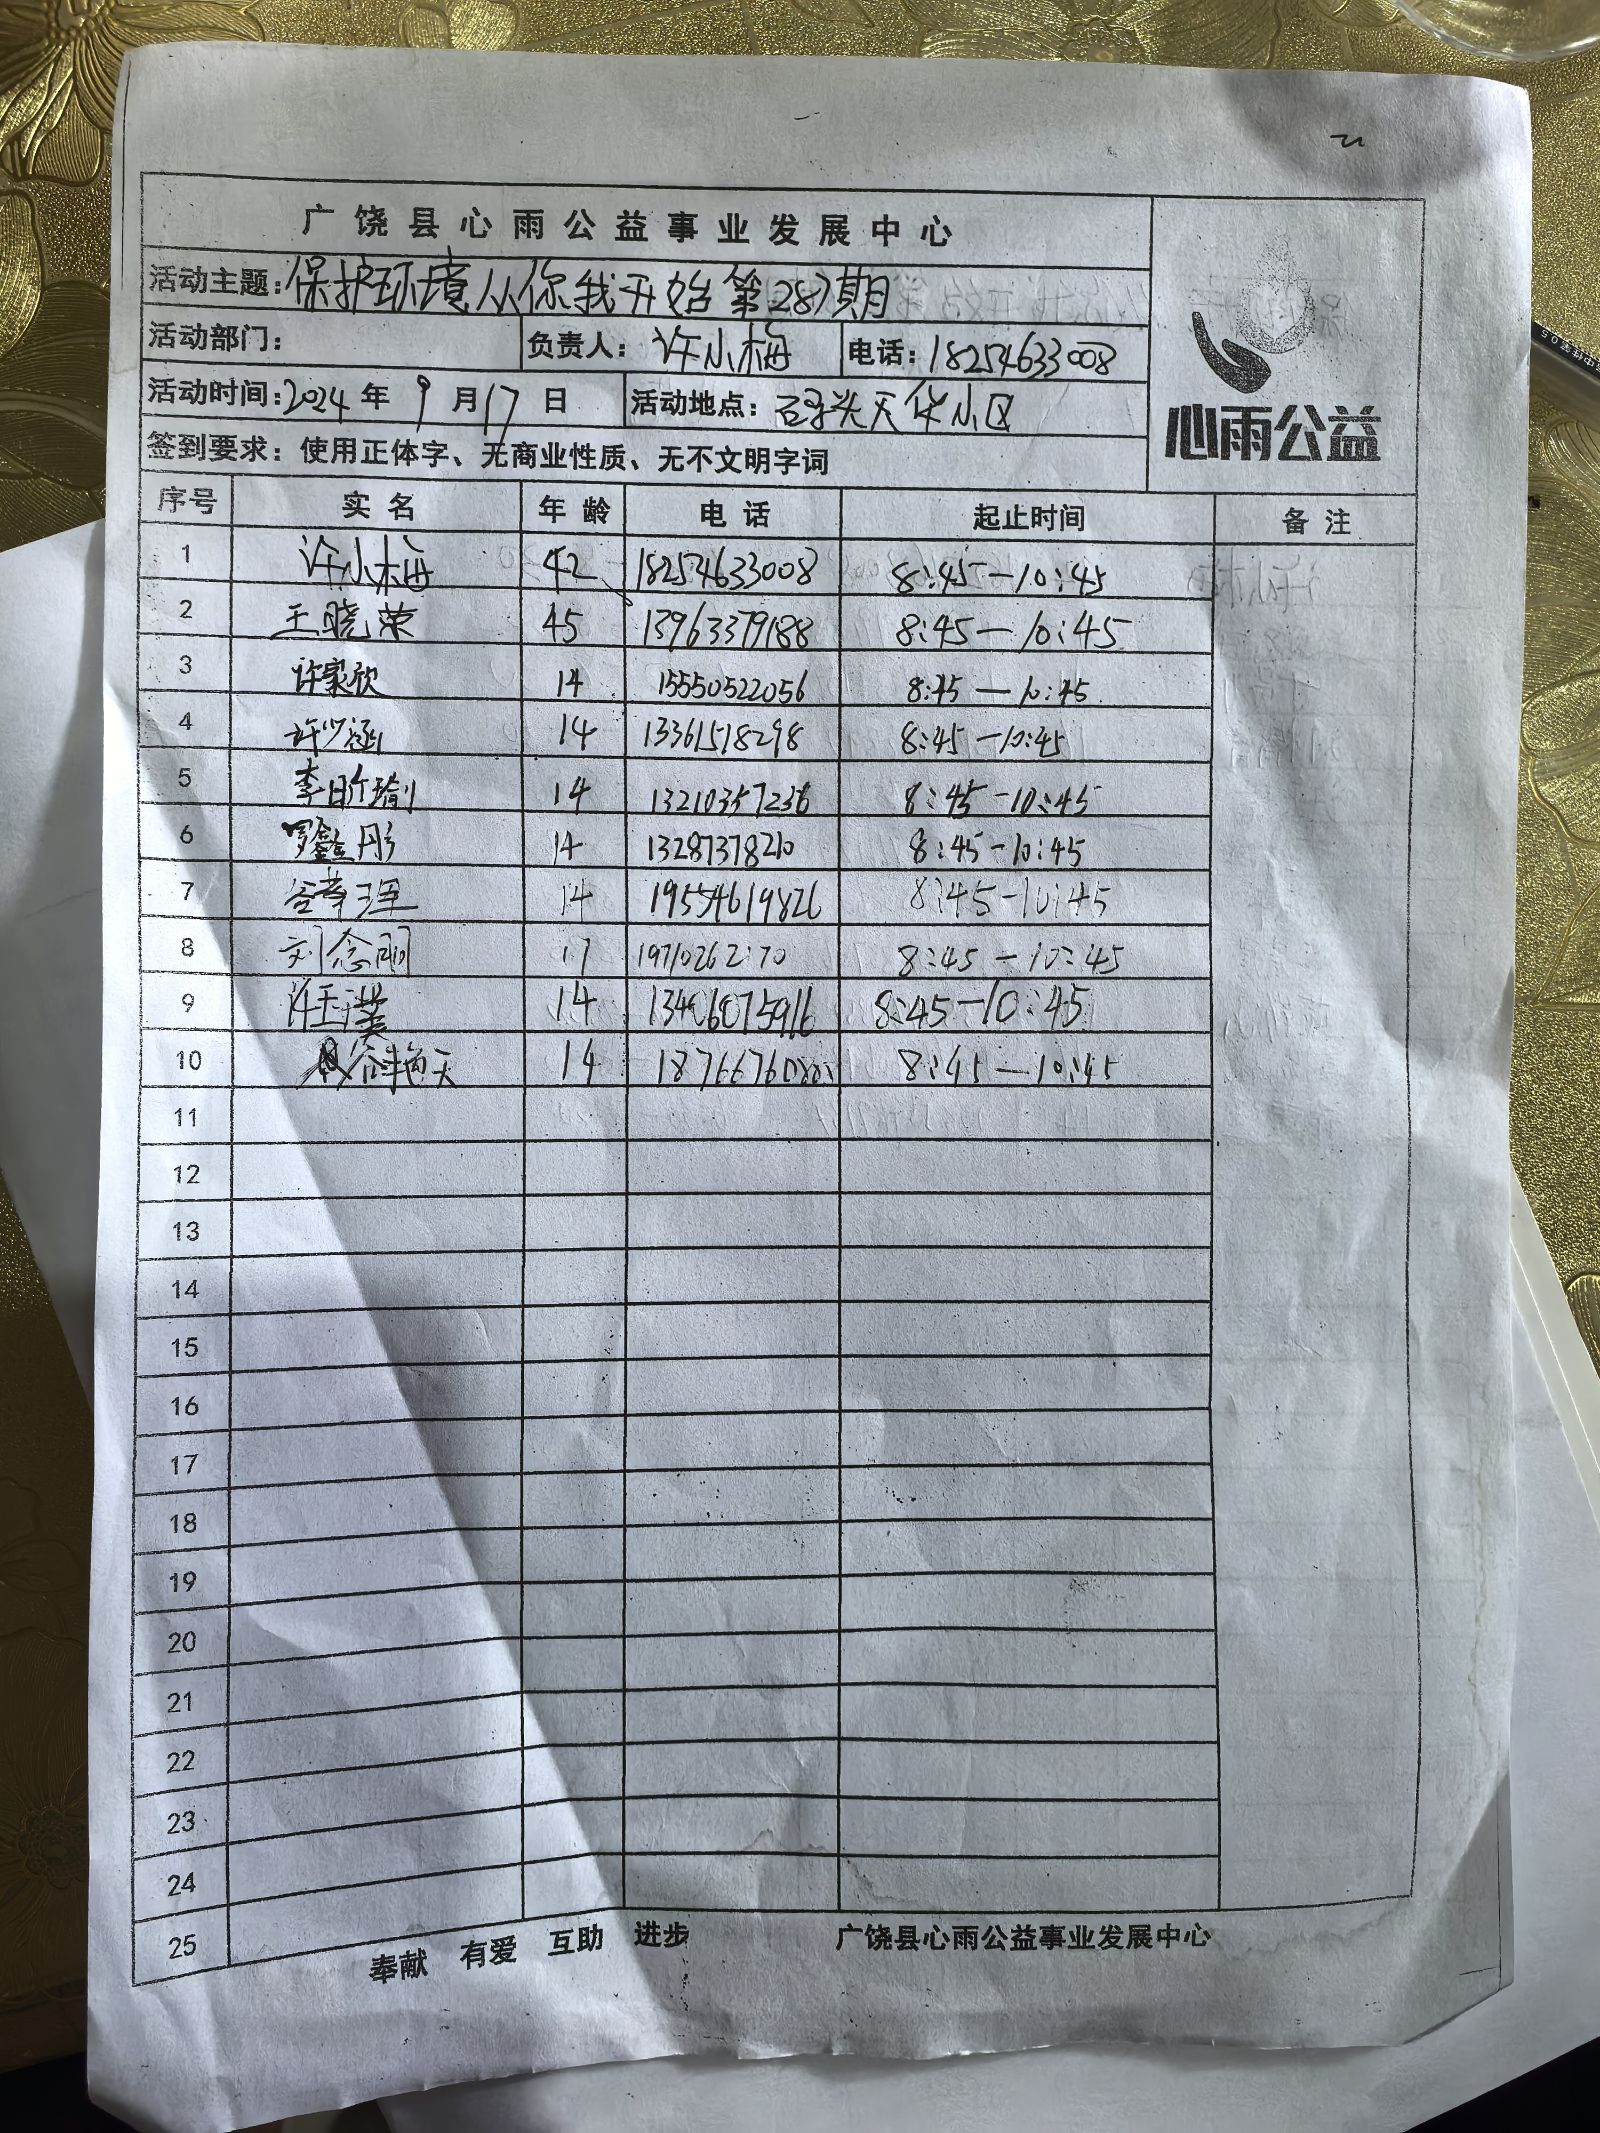 广饶县心雨公益事业发展中心
活动主题:保护环境从你我开始第287期
活动部门: 负责人: 许小梅 电话:18254633008
活动时间:2024年 9月17日 活动地点:码头天华小区
签到要求:使用正体字、无商业性质、无不文明字词
心雨公益
序号 实名 年龄 电话 起止时间 备注
1 许小梅 42 18254633008 8:45—10:45
2 王晓荣 45 13963379188 8:45—10:45
3 许家欣 14 15550522056 8:45—10:45
4 许少涵 14 13361518298 8:45—10:45
5 李昕瑜 14 13210357236 8:45—10:45
6 罗鑫彤 14 13287378210 8:45—10:45
7 14 19554619826 8:45—10:45
8 刘念刚 17 8:45—10:45
9 14 13406075916 8:45—10:45
10 14 8:45—10:45
11
12
13
14
15
16
17
18
19
20
21
22
23
24
25
奉献 有爱 互助 进步 广饶县心雨公益事业发展中心